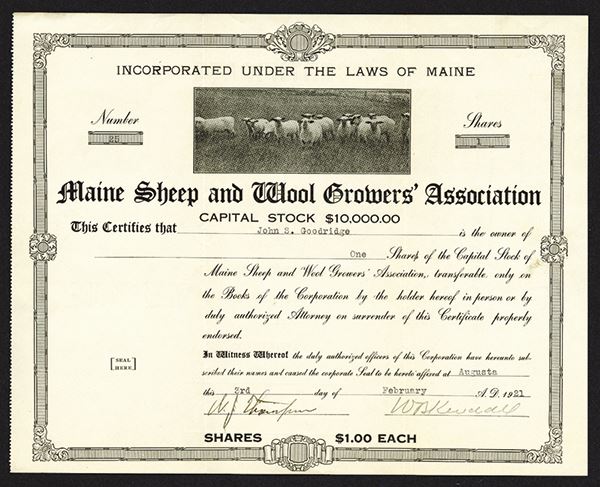 INCORPORATED UNDER THE LAWS OF MAINE
Number
Shares
25
1
Maine Sheep and Wool Growers' Association
CAPITAL STOCK $10,000.00
This Certifies that John S. Goodridge is the owner of
One Shares of the Capital Stock of
Maine Sheep and Wool Growers' Association, transferable only on
the Books of the Corporation by the holder hereof in person or by
duly authorized Attorney on surrender of this Certificate properly
endorsed.
[SEAL HERE]
In Witness Whereof the duly authorized officers of this Corporation have hereunto sub-
scribed their names and caused the corporate Seal to be hereto affixed at Augusta
this 3rd day of February A.D. 1921
W B Kendall
SHARES $1.00 EACH